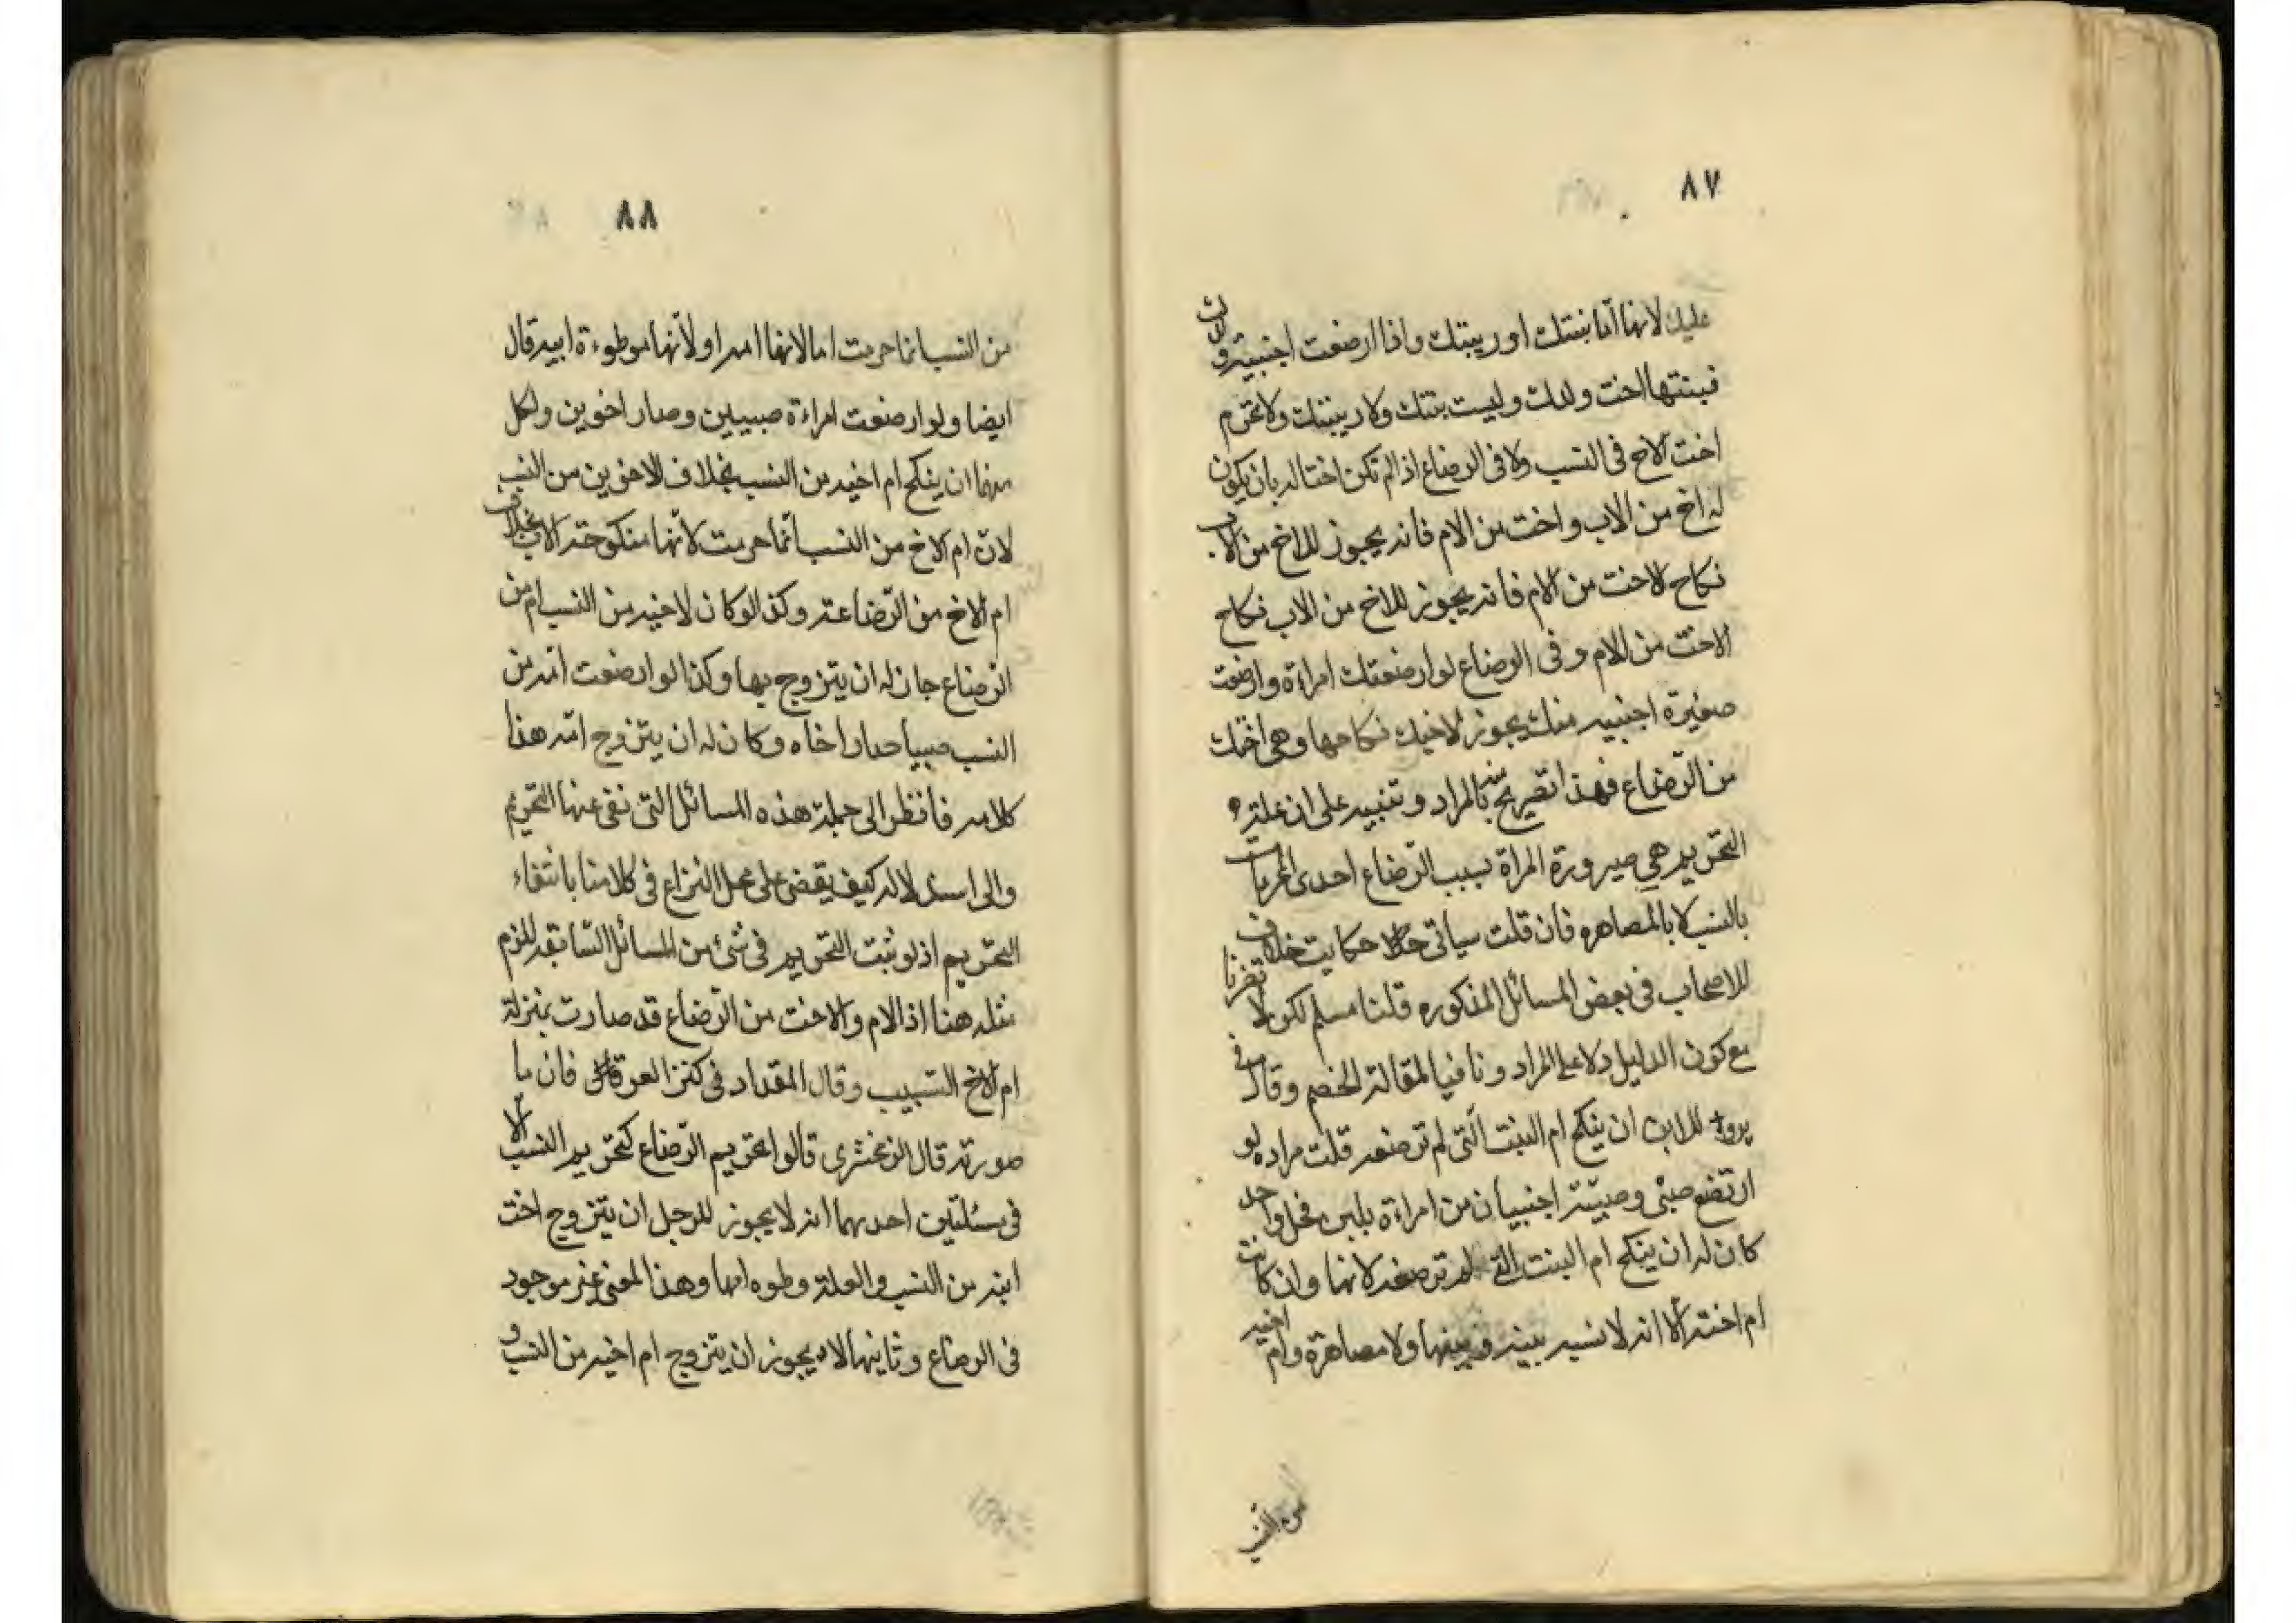 ٨٧
عليك لانها اما بنتك او ربيبتك واذا ارضعت اجنبية ولدك
فبنتها اخت ولدك وليست بنتك ولا ربيبتك ولا تحرم
اخت الاخ فى النسب ولا فى الرضاع اذا لم تكن اختا له بان يكون
له اخ من الاب واخت من الام فانه يجوز للاخ من الاب
نكاح الاخت من الام فانه يجوز للاخ من الاب نكاح
الاخت من الام وفى الرضاع لو ارضعتك امراءة وارضعت
صغيرة اجنبيه منك يجوز لاخيك نكاحها وهى اختك
من الرّضاع فهذا تصريح منه بالمراد وتنبيه على ان علته
التحريم هى صيرورة المراة بسبب الرّضاع احدى المحرمات
بالنسب لا بالمصاهره فان قلت سياتى حكاية خلاف
للاصحاب فى بعض المسائل المذكوره قلنا مسلم لكن لا تضرنا
مع كون الدليل دلا على المراد ونافيا لمقالة الخصم وقال فى
للابن ان ينكح ام البنت الّتى لم ترضعه قلت مراده لو
ارتضع صبىّ وصبيّة اجنبيان من امراءة بلبن فحل واحد
كان له ان ينكح ام البنت التى لم ترضعه لانها وان كانت
ام اخته الا انه لا نسب بينه وبينها ولا مصاهرة وام اخيه
من النسب
٨٨
من النسب انما حرمت اما لانها امه او لأنها موطوءة ابيه قال
ايضا ولو ارضعت امراءة صبيين وصار اخوين ولكل
منهما ان ينكح ام اخيه من النسب بخلاف الاخوين من النسب
لانّ ام الاخ من النسب انّما حرمت لأنها منكوحة الاب بخلاف
ام الاخ من الرّضاعة وكذا لو كان لاخيه من النسب ام من
الرّضاع جاز له ان يتزوج بها وكذا لو ارضعت امّه من
النسب صبيا صار اخاه وكان له ان يتزوج امّه هذا
كلامه فانظر الى جملة هذه المسائل التى نفى عنها التحريم
والى استدلاله كيف يقضى على محل النزاع فى كلامنا بانتفاء
التحريم اذ لو ثبت التحريم فى شئ من المسائل السّابقه للزم
مثله هنا اذ الام والاخت من الرّضاع قد صارت بمنزلة
ام الاخ النسيب وقال المقداد فى كنز العرفان ما
صورته قال الزمخشرى قالوا تحريم الرّضاع كتحريم النسب الّا
فى مسئلتين احديهما انه لا يجوز للرجل ان يتزوج اخت
ابنه من النسب والعلة وطوه امها وهذا المعنى غير موجود
فى الرضاع وثانيها لا يجوز ان يتزوج ام اخيه من النسب و